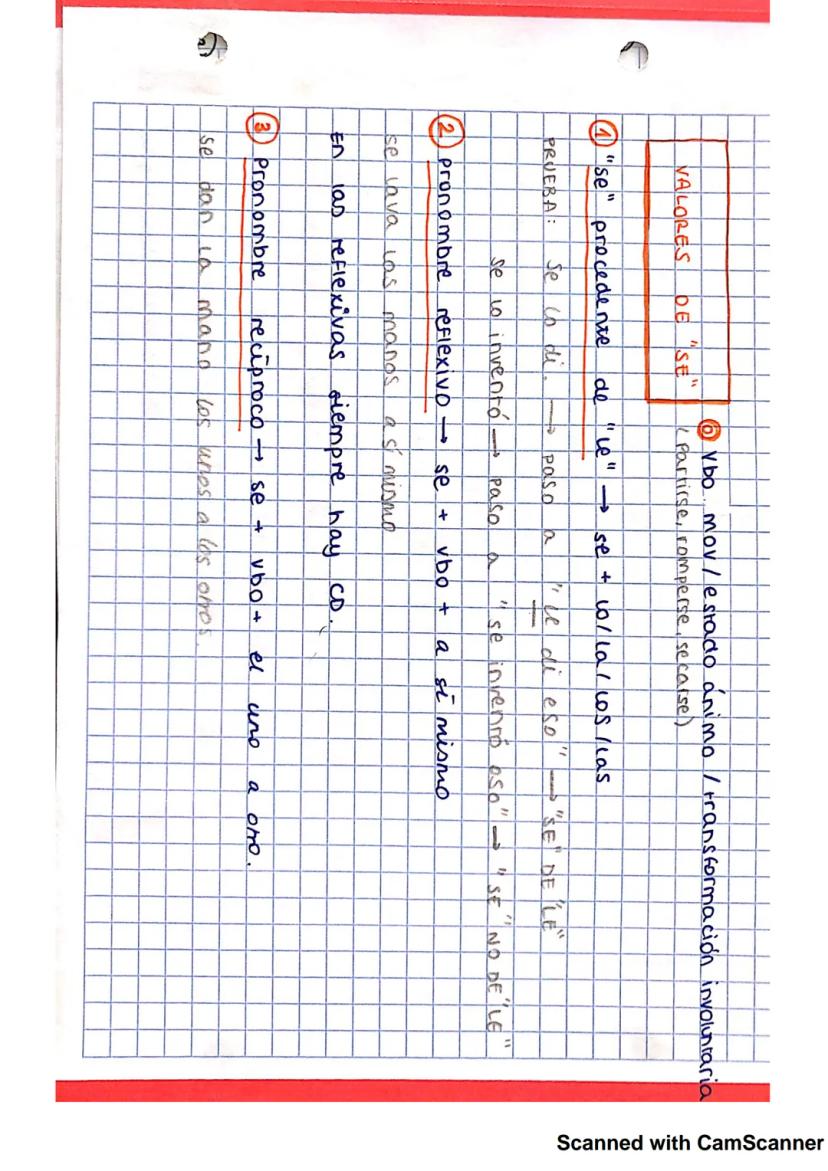 VALORES DE "SE"
⓪ vbo. mov / estado ánimo / transformación involuntaria
(partirse, romperse, secarse)
① "se" procedente de "le" → se + lo/la/los/las
PRUEBA: se lo di. → paso a "le di eso" → "SE" DE "LE"
se lo inventó → paso a "se inventó eso" → "SE" NO DE "LE"
② pronombre reflexivo → se + vbo + a sí mismo
se lava las manos a sí mismo
En las reflexivas siempre hay CD.
③ Pronombre recíproco → se + vbo + el uno a otro.
se dan la mano los unos a los otros.
Scanned with CamScanner